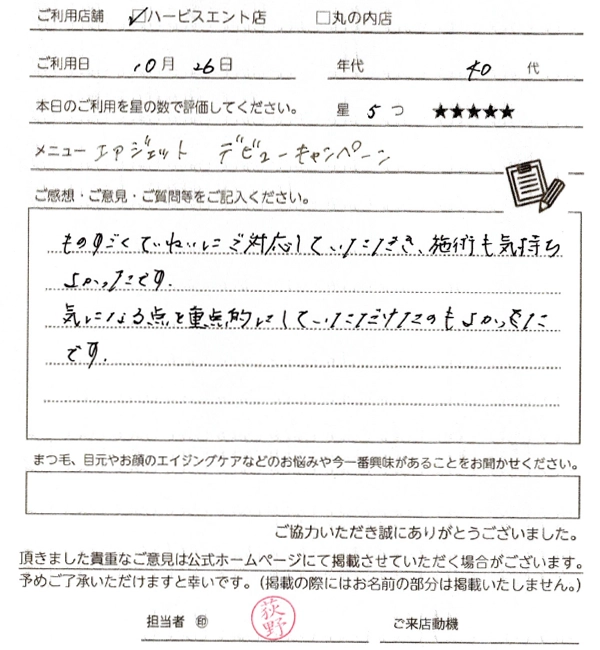 ご利用店舗 ☑ハービスエント店 □丸の内店
ご利用日 10月 26日 年代 40 代
本日のご利用を星の数で評価してください。 星 5 つ ★★★★★
メニュー エアジェット デビューキャンペーン
ご感想・ご意見・ご質問等をご記入ください。
ものすごくていねいにご対応していただき、施術も気持ち
よかったです。
気になる点を重点的にしていただけたのもよかった
です。
まつ毛、目元やお顔のエイジングケアなどのお悩みや今一番興味があることをお聞かせください。
ご協力いただき誠にありがとうございました。
頂きました貴重なご意見は公式ホームページにて掲載させていただく場合がございます。
予めご了承いただけますと幸いです。（掲載の際にはお名前の部分は掲載いたしません。）
担当者 ㊞ 荻野 ご来店動機